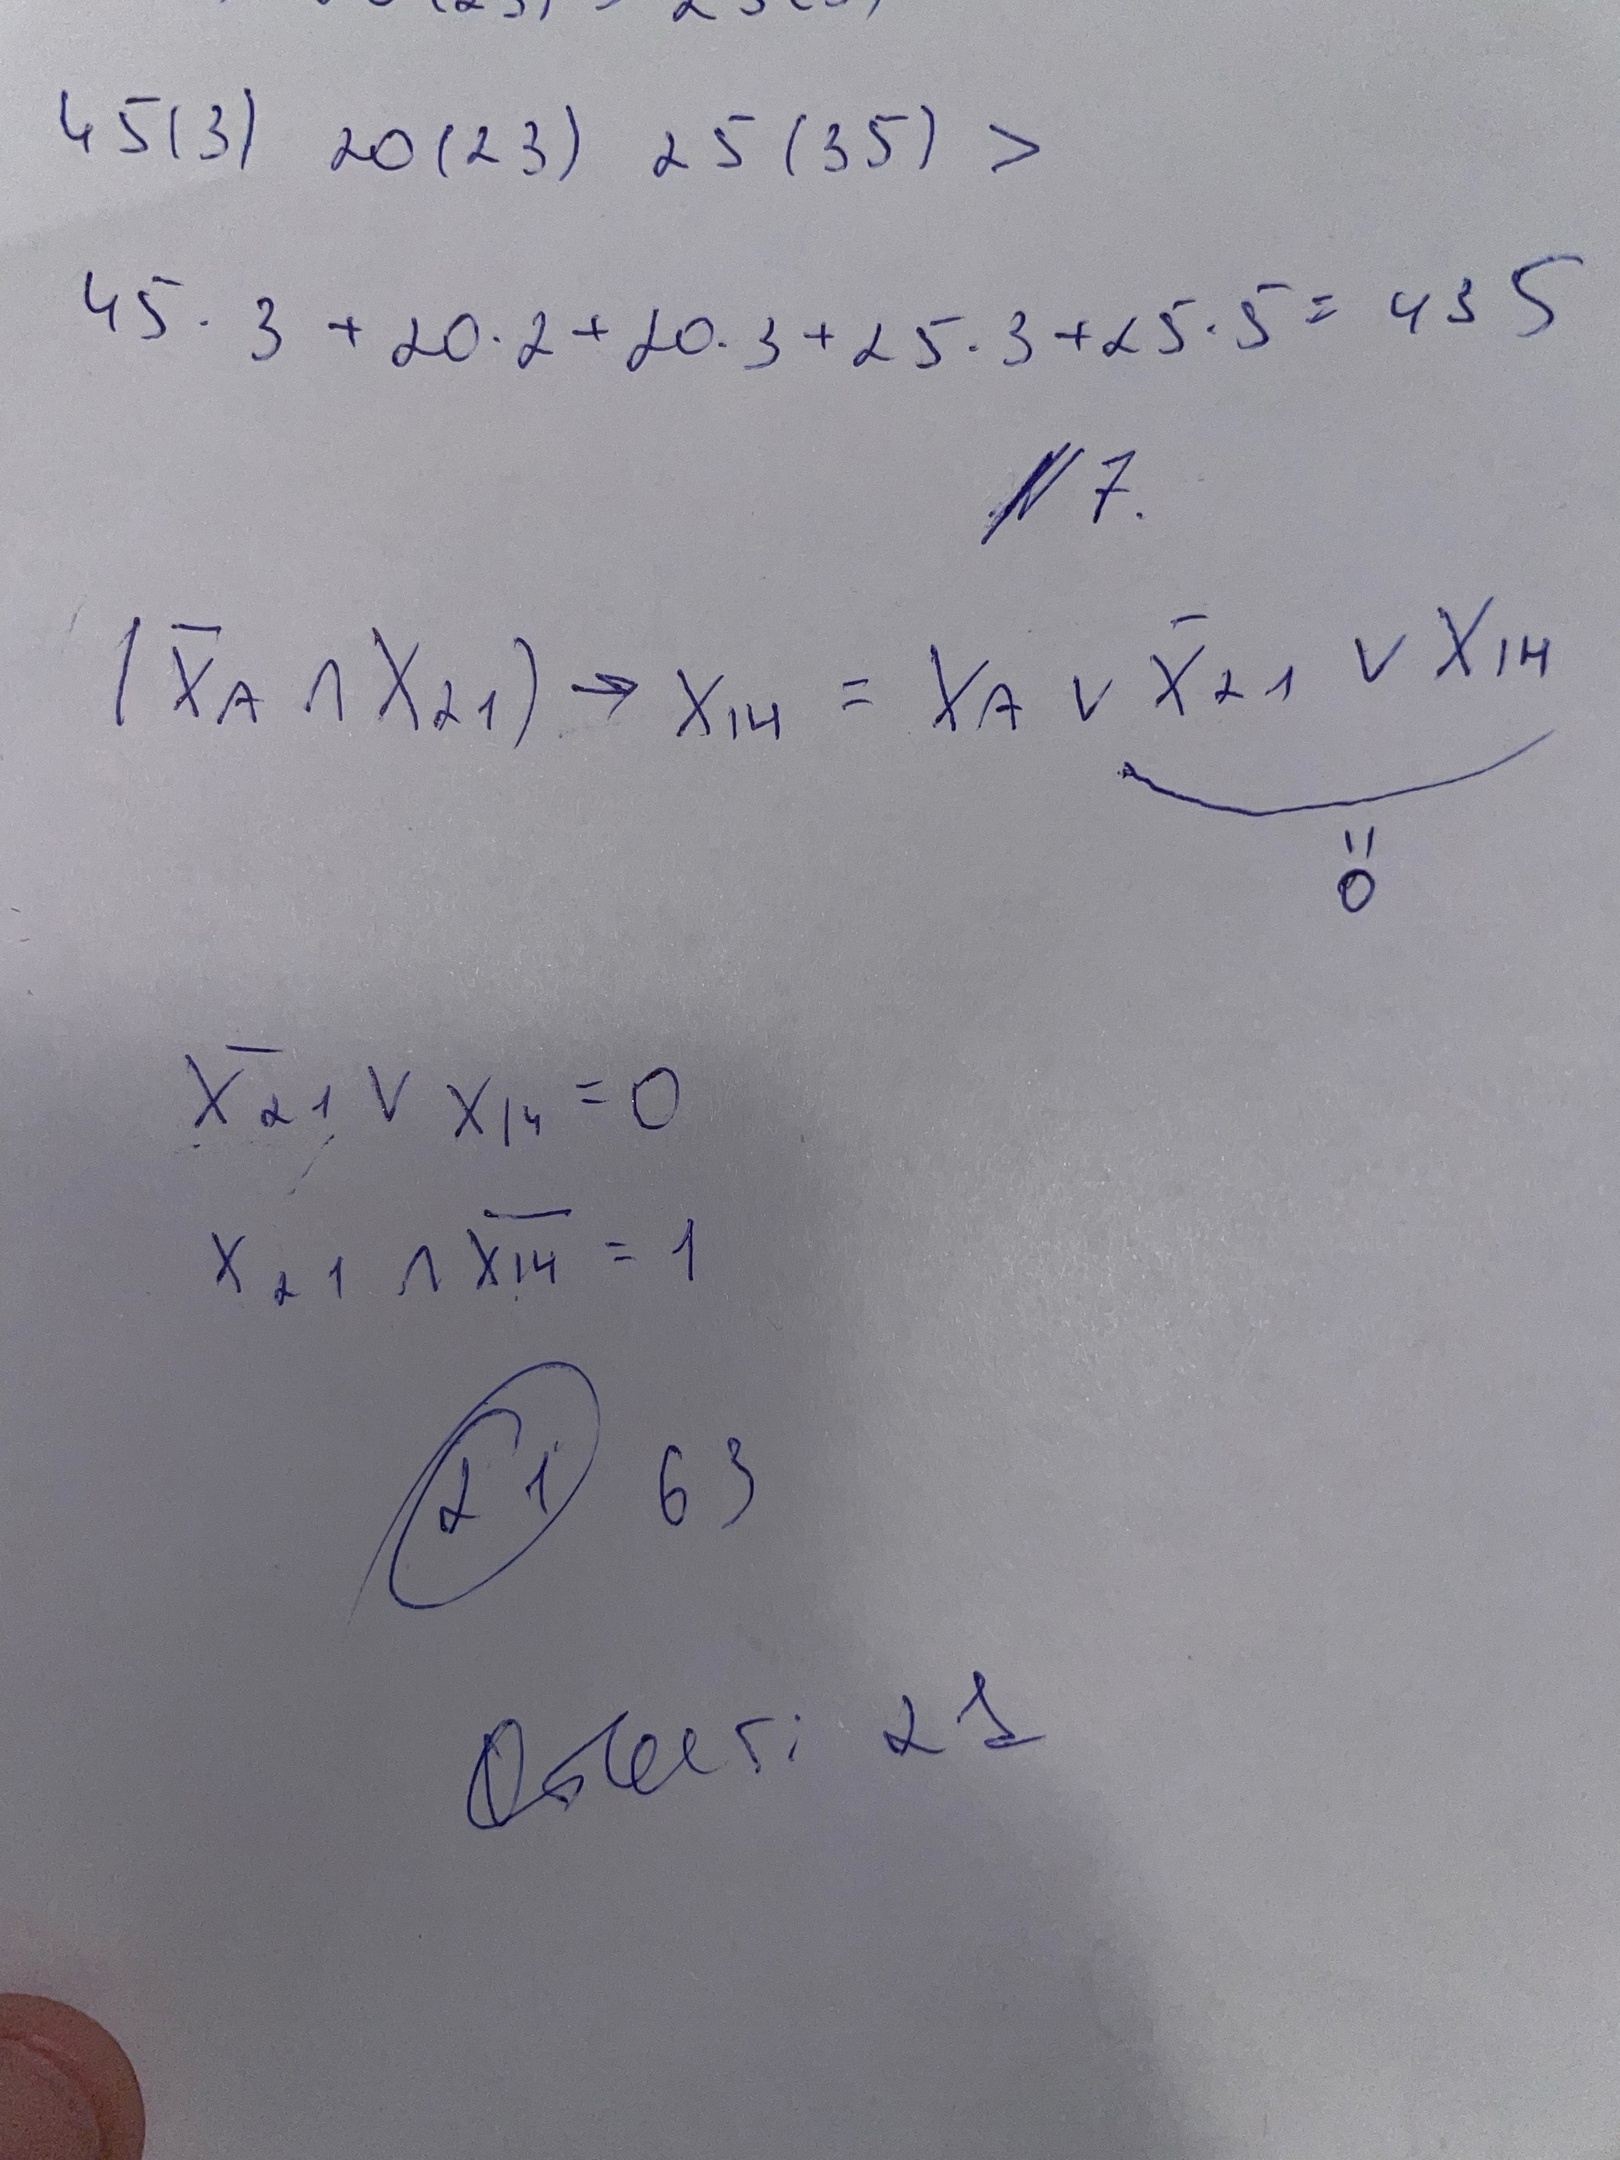 45(3) 20(23) 25(35) >
45·3+20·2+20·3+25·3+25·5=435
N7.
(X̅A ∧ X21) → X14 = XA ∨ X̅21 ∨ X14
=
0
X̅21 ∨ X14 = 0
X21 ∧ X̅14 = 1
21 63
Ответ: 21